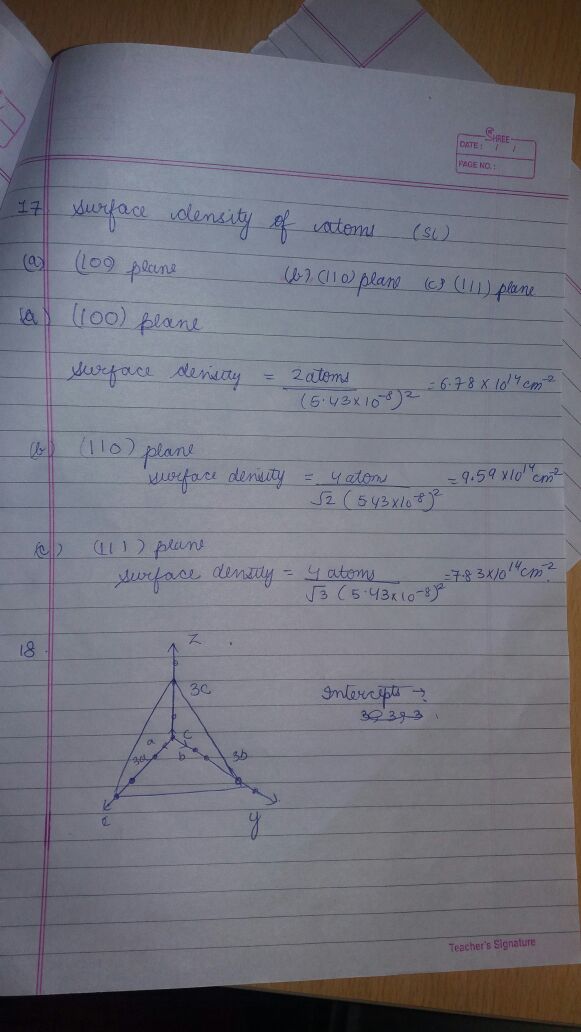 SHREE
DATE: / /
PAGE NO.:
17. Surface density of atoms (Si)
(a) (100) plane (b) (110) plane (c) (111) plane
(a) (100) plane
surface density = 2 atoms / (5.43×10⁻⁸)² = 6.78 × 10¹⁴ cm⁻²
(b) (110) plane
surface density = 4 atoms / √2 (5.43×10⁻⁸)² = 9.59 × 10¹⁴ cm⁻²
(c) (111) plane
surface density = 4 atoms / √3 (5.43×10⁻⁸)² = 7.83×10¹⁴ cm⁻²
18.
z
3c
Intercepts →
a c
3a b 3b
y
Teacher's Signature